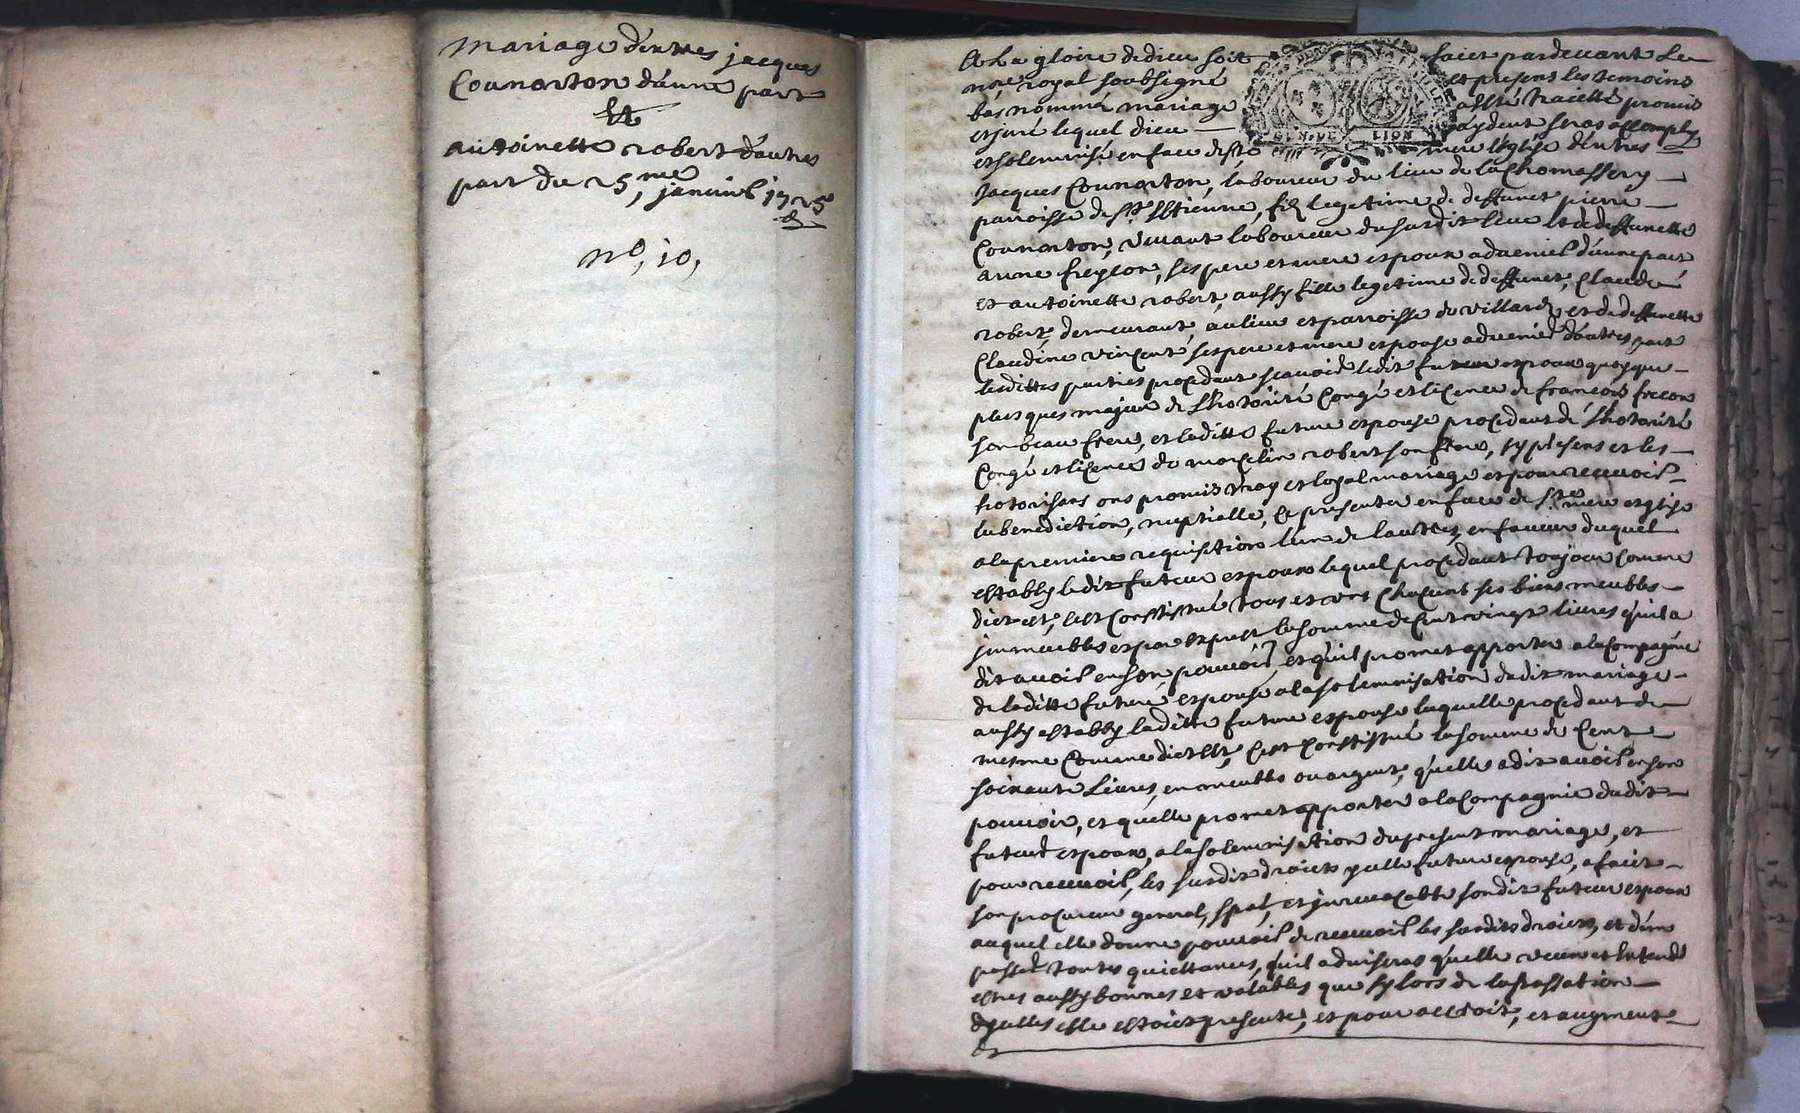 mariage d'entres jacques
Counorton d'aune part
Et
antoinette robert d'autres
part du 25,me janvier 1725
no, 10,
A La gloire de dieu soit faict pardevant Le
nore royal soubsigné et present les temoins
bas nommer mariage a esté traicté promis
et juré lequel dieu aydent seras accomply
et solemnisé en face de ste mere Eglise d'entres
Jacques Counorton, laboureur du lieu de la Chomassery
parroisse de St Estienne, fils legetime de deffunct pierre
Counorton, vivant laboureur du susdit lieu Et de deffunette
anne freyson, ses pere et mere espoux advenir d'aune part
et antoinette robert, aussy fille legetime de deffunct, Claude
robert, demeurant, au lieu et parroisse du villard, et de deffunette
Claudine vincent ses pere et mere espouse advenir d'autres part
lesdittes parties procedant scavoir ledit futeur espoux quoyque
plus ques majeur de Lhotorité Congé et licence de francois
son beau frere, et laditte future espouse procedant de Lhotorité
Congé et licence de marcelin robert son frere, sy present et les
hotorisans ons promis vray et loyal mariage et pour recevoir
la benediction, nuptialle, ce presenter en face de ste mere esglise
a la premiere requisition lun de lautres, en faveur duquel
establÿ ledit futeur espoux lequel procedant toujour comme
dict est, sest Constitué tous et uns chacuns ses biens meubles
jmmeubles et par expres la somme de Cent vingt livres qu'il a
dit avoir en son pouvoir, et qu'il promet apporter a la Compagnie
de laditte future espouse a la solemnisation dudit mariage
aussy establÿ laditte future espouse laquelle procedant de
mesme Comme dict Est, cest Constitué la somme de Cent
soixante Livres, en meubles ou argent, qu'elle a dit avoir en son
pouvoir, et quelle promet apporter a la Compagnie dudit
futeur espoux, a la solemnisation du present mariage, et
pour recevoir, les susdit droicts ycelle future espouse, a faict
son procureur general, spal, et jrrevocable sondit futeur espoux
auquel elle donne pouvoir de recevoir les susdits droicts, et d'en
passer toutes quiettances, qu'il adviseras qu'elle veux et Entend
estres aussy bonnes et valables que sy lors de la passation
dycelles elle estoit presente, et pour accroit, et augment